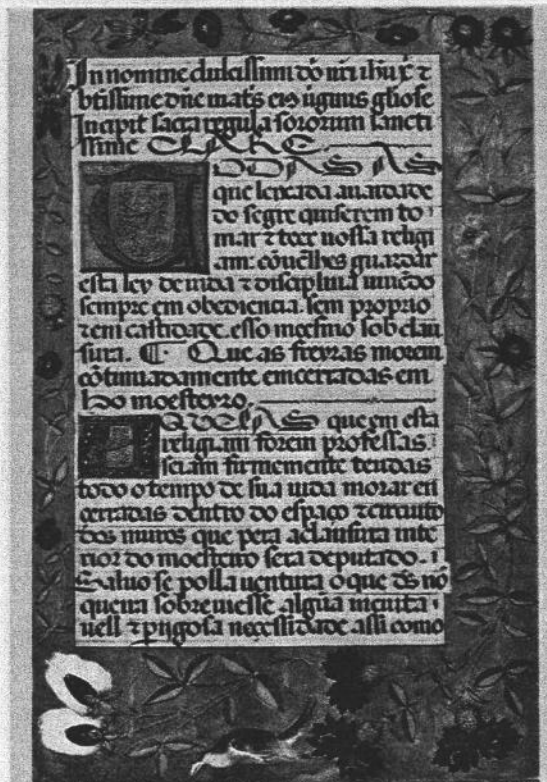 In nomine dulcissimi dñi nri ihu xp̃ ⁊
btissime dñe matꝭ eiꝰ uirginis gliose
Incipit sacra regula sororum sancti
ssime CLARE.
TODAS AS
que leixada a uaidade
do segre quiserem to
mar ⁊ teer uossa religi
am: cõuẽlhes guardar
esta ley de uida ⁊ disciplina uiuẽdo
sempre em obediencia. sem proprio
⁊ em castidade. esso meesmo sob clau
sura. ¶ Que as freyras morem
cõtinuadamente emcerradas em
ho moesteyro.
AQUELAS que em esta
religiam forem professas:
seiam firmemente teudas
todo o tempo de sua uida morar en
cerradas dentro do espaço ⁊ circuito
dos muros que pera a clausura inte
rior do moesteiro sera deputado.
Saluo se polla uentura o que ds̃ nõ
queira sobreuiesse algũa ineuita
uell ⁊ p̱rigosa necessidade assi como